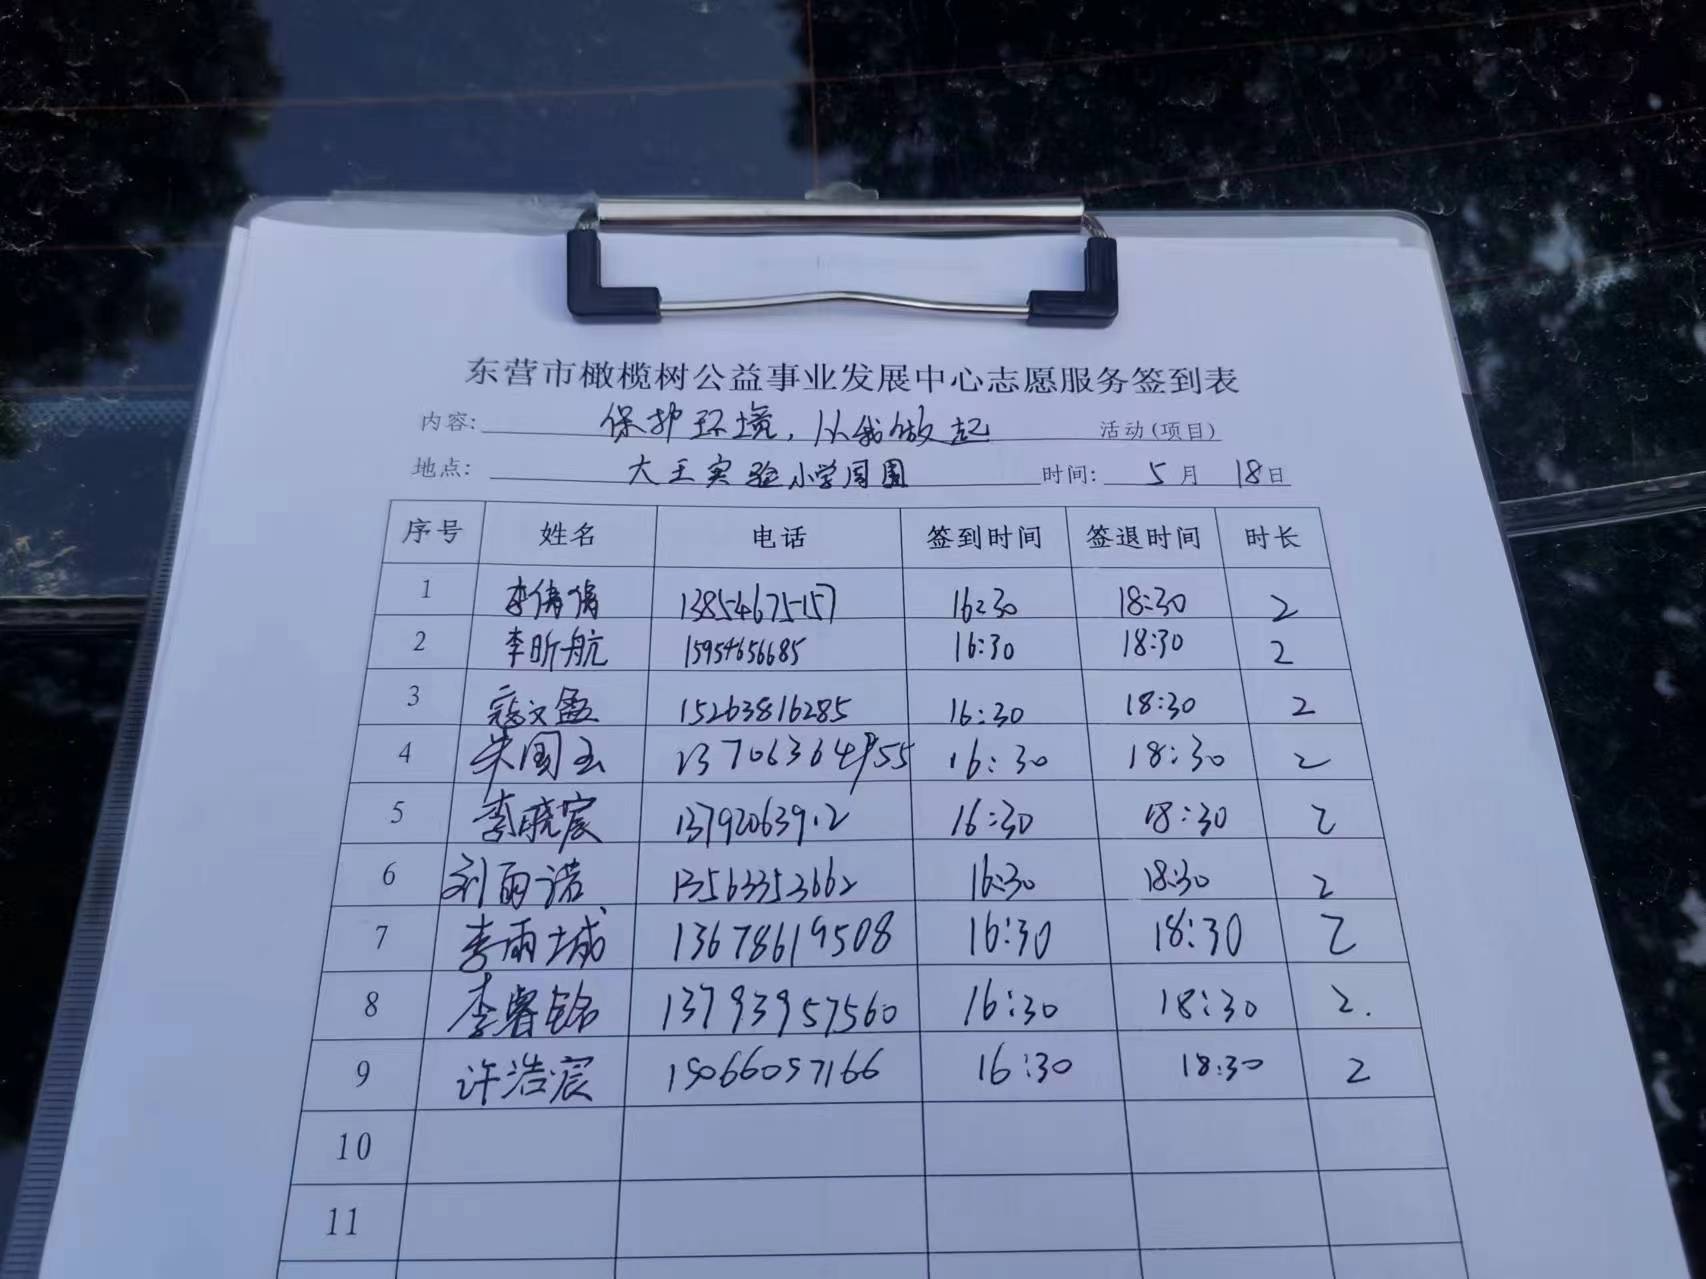 东营市橄榄树公益事业发展中心志愿服务签到表
内容: 保护环境，从我做起 活动(项目)
地点: 大王实验小学周围 时间: 5月 18日
序号 姓名 电话 签到时间 签退时间 时长
1 李倩倩 13854675157 16:30 18:30 2
2 李昕航 15954656685 16:30 18:30 2
3 寇文盈 15263816285 16:30 18:30 2
4 国玉 16:30 18:30 2
5 李晓宸 16:30 18:30 2
6 刘雨诺 13563353662 16:30 18:30 2
7 李雨城 13678619508 16:30 18:30 2
8 李睿铭 13793957560 16:30 18:30 2.
9 许浩宸 15066057166 16:30 18:30 2
10
11